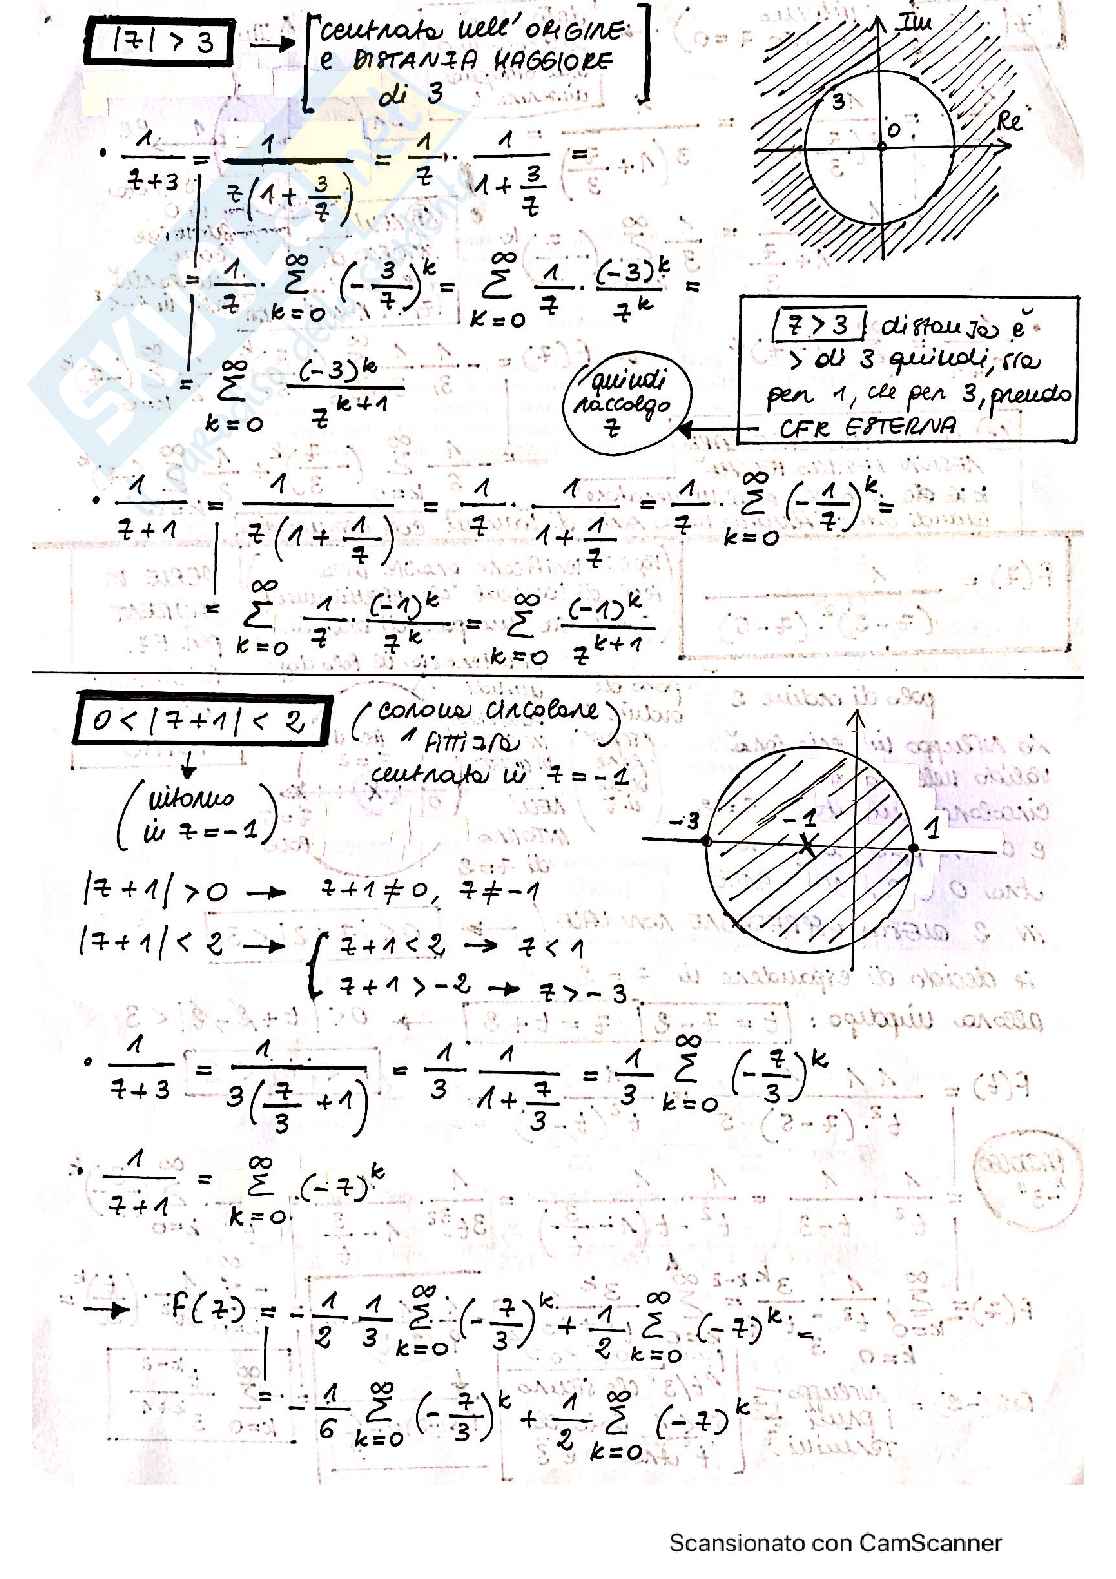 |z| > 3 → [centrata nell'ORIGINE
e DISTANZA MAGGIORE
di 3]
Im
3
0
Re
• 1/(z+3) = 1/(z(1 + 3/z)) = 1/z · 1/(1 + 3/z) =
= 1/z · ∑_{k=0}^{∞} (-3/z)^k = ∑_{k=0}^{∞} 1/z · (-3)^k/z^k =
= ∑_{k=0}^{∞} (-3)^k/z^{k+1}
quindi
raccolgo
z
z > 3 distanza è
> di 3 quindi, sia
per 1, che per 3, prendo
CFR ESTERNA
• 1/(z+1) = 1/(z(1 + 1/z)) = 1/z · 1/(1 + 1/z) = 1/z · ∑_{k=0}^{∞} (-1/z)^k =
= ∑_{k=0}^{∞} 1/z · (-1)^k/z^k = ∑_{k=0}^{∞} (-1)^k/z^{k+1}
0 < |z+1| < 2 (corona circolare
1 fittizia)
centrata in z = -1
(intorno
in z = -1)
-3
-1
1
|z+1| > 0 → z+1 ≠ 0, z ≠ -1
|z+1| < 2 → { z+1 < 2 → z < 1
z+1 > -2 → z > -3
• 1/(z+3) = 1/(3(z/3 + 1)) = 1/3 · 1/(1 + z/3) = 1/3 ∑_{k=0}^{∞} (-z/3)^k
• 1/(z+1) = ∑_{k=0}^{∞} (-z)^k
→ F(z) = -1/2 1/3 ∑_{k=0}^{∞} (-z/3)^k + 1/2 ∑_{k=0}^{∞} (-z)^k =
= -1/6 ∑_{k=0}^{∞} (-z/3)^k + 1/2 ∑_{k=0}^{∞} (-z)^k
Scansionato con CamScanner